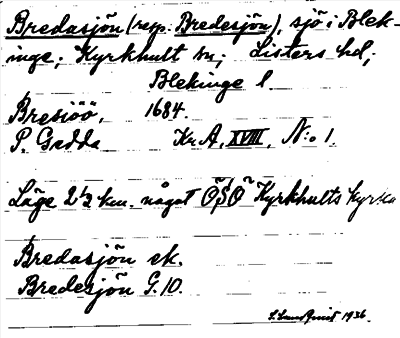 Bredasjön (resp. Bredesjön), sjö i Blek-
inge; Kyrkhult sn; Listers hd;
Blekinge l.
Bresiöö, 1684.
P. Gedda Kr A, XVIII, N:o 1.
Läge 2 1/2 km. något ÖSÖ Kyrkhults kyrka
Bredasjön ek.
Bredesjön G. 10.
S. Lundquist 1936.